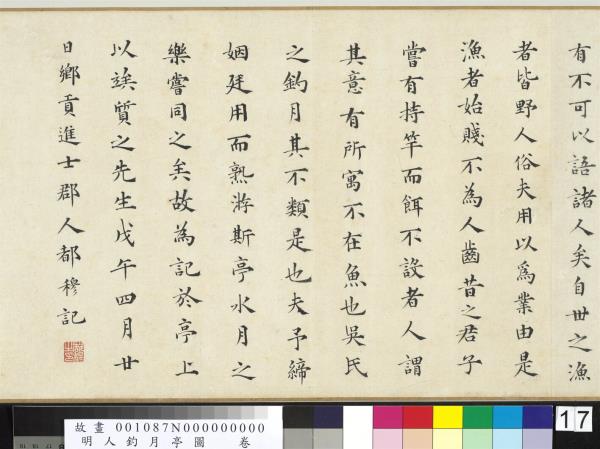 有不可以語諸人矣自世之漁
者皆野人俗夫用以為業由是
漁者始賤不為人齒昔之君子
嘗有持竿而餌不設者人謂
其意有所寓不在魚也吳氏
之釣月其不類是也夫予締
姻廷用而熟游斯亭水月之
樂嘗同之矣故為記於亭上
以諉質之先生戊午四月廿
日鄉貢進士郡人都穆記
17
故畫 001087N000000000
明人釣月亭圖 卷